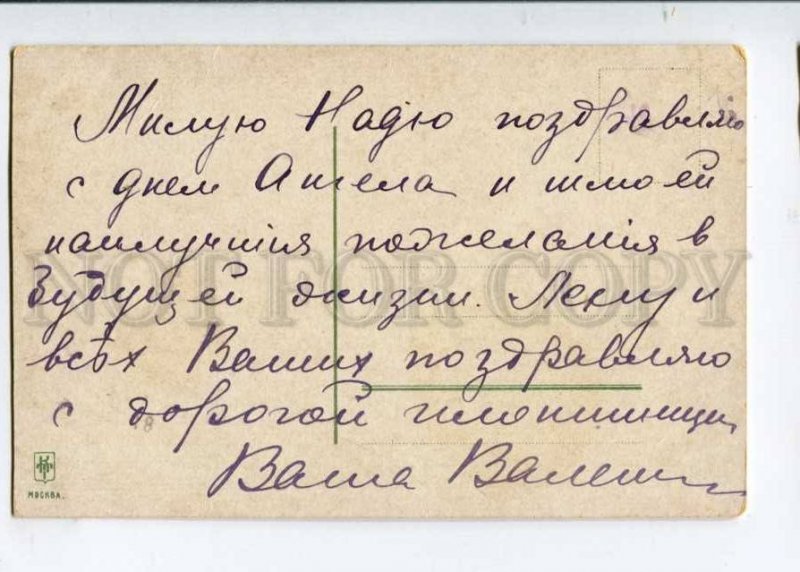 Милую Надю поздравляю
с днем Ангела и шлю ей
наилучшія пожеланія в
будущей жизни. Лену и
всѣх Ваших поздравляю
с дорогой имянинницей
Ваша
МОСКВА.
NOT FOR COPY